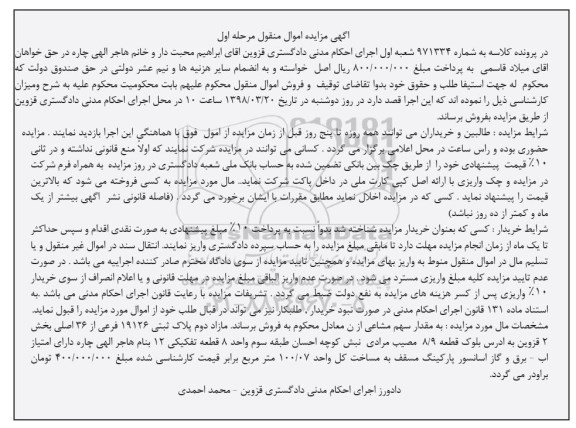 آگهی مزایده اموال منقول مرحله اول
در پرونده کلاسه به شماره ۹۷۱۳۳۴ شعبه اول اجرای احکام مدنی دادگستری قزوین آقای ابراهیم محبت دار و خانم هاجر الهی چاره در حق خواهان
آقای میلاد قاسمی به پرداخت مبلغ ۸۰۰/۰۰۰/۰۰۰ ریال اصل خواسته و به انضمام سایر هزینه ها و نیم عشر دولتی در حق صندوق دولت که
محکوم له جهت استیفا طلب و حقوق خود بدوا تقاضای توقیف و فروش اموال منقول محکوم علیهم بابت محکومیت محکوم علیه به شرح ومیزان
کارشناسی ذیل را نموده اند که این اجرا قصد دارد در روز دوشنبه در تاریخ ۱۳۹۸/۰۳/۲۰ ساعت ۱۰ در محل اجرای احکام مدنی دادگستری قزوین
از طریق مزایده بفروش برساند.
شرایط مزایده : طالبین و خریداران می توانند همه روزه تا پنج روز قبل از زمان مزایده از امول فوق با هماهنگی این اجرا بازدید نمایند . مزایده
حضوری بوده و راس ساعت در محل اعلامی برگزار می گردد . کسانی می توانند در مزایده شرکت نمایند که اولاً منع قانونی نداشته و در ثانی
۱۰٪ قیمت پیشنهادی خود را از طریق چک بین بانکی تضمین شده به حساب بانک ملی شعبه دادگستری در روز مزایده به همراه فرم شرکت
در مزایده و چک واریزی با ارائه اصل کپی کارت ملی در داخل پاکت شرکت نماید. مال مورد مزایده به کسی فروخته می شود که بالاترین
قیمت را پیشنهاد نماید . کسی که در مزایده اخلال نماید مطابق مقررات با ایشان برخورد می گردد . (فاصله قانونی نشر آگهی بیشتر از یک
ماه و کمتر از ده روز نباشد)
شرایط خریدار : کسی که بعنوان خریدار مزایده شناخته شد بدواً نسبت به پرداخت ۱۰٪ مبلغ پیشنهادی به صورت نقدی اقدام و سپس حداکثر
تا یک ماه از زمان انجام مزایده مهلت دارد تا مابقی مبلغ مزایده را به حساب سپرده دادگستری واریز نمایند. انتقال سند در اموال غیر منقول و یا
تسلیم مال در اموال منقول منوط به واریز بهای مزایده و همچنین تایید مزایده از سوی دادگاه محترم صادر کننده اجراییه می باشد . در صورت
عدم تایید مزایده کلیه مبلغ واریزی مسترد می شود. در صورت عدم واریز الباقی مبلغ مزایده در مهلت قانونی و یا اعلام انصراف از سوی خریدار
۱۰٪ واریزی پس از کسر هزینه های مزایده به نفع دولت ضبط می گردد . تشریفات مزایده با رعایت قانون اجرای احکام مدنی می باشد .به
استناد ماده ۱۳۱ قانون اجرای احکام مدنی در صورت نبود خریدار ، طلبکار نیز می تواند در قبال طلب خود از اموال مورد مزایده را قبول نماید.
مشخصات مال مورد مزایده : به مقدار سهم مشاعی از ن معادل محکوم به فروش برساند. مازاد دوم پلاک ثبتی ۱۹۱۲۶ فرعی از ۳۶ اصلی بخش
۲ قزوین به ادرس بلوک قطعه ۸/۹ مصیب مرادی نبش کوچه احسان طبقه سوم واحد ۸ قطعه تفکیکی ۱۲ بنام هاجر الهی چاره دارای امتیاز
اب - برق و گاز اسانسور پارکینگ مسقف به مساخت کل واحد ۱۰۰/۰۷ متر مربع برابر قیمت کارشناسی شده مبلغ ۴۰۰/۰۰۰/۰۰۰ تومان
براودر می گردد.
دادورز اجرای احکام مدنی دادگستری قزوین - محمد احمدی